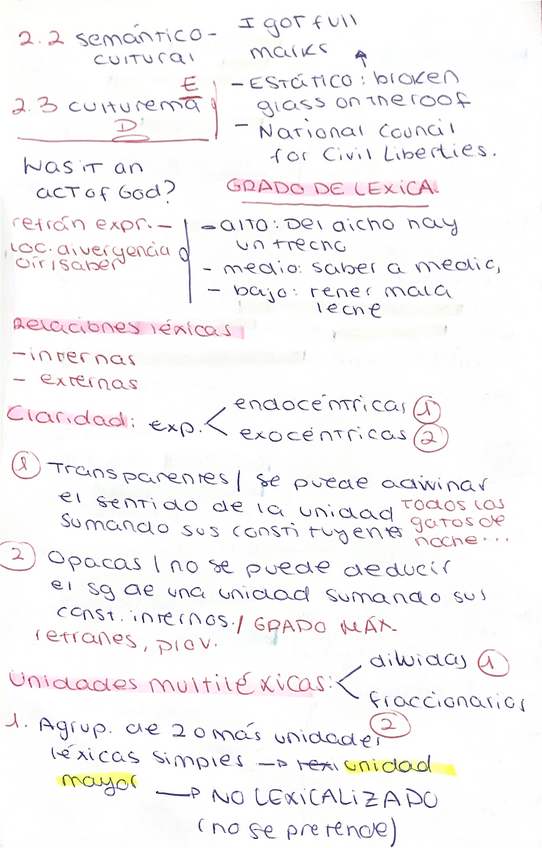 2.2 semántico-
cultural
I got full
marks
E
2.3 culturema
D
- ESTÁTICO: broken
glass on the roof
- National Council
for Civil Liberties.
Was it an
act of God?
GRADO DE LEXICA.
refrán expr. -
LOC. divergencia
oír/saber
- alto: Del dicho hay
un trecho
- medio: saber a medic,
- bajo: tener mala
leche
Relaciones léxicas
- internas
- externas
Claridad: exp. < endocéntricas 1
exocéntricas 2
1 Transparentes / se puede adivinar
el sentido de la unidad
sumando sus constituyente
Todos los
gatos de
noche...
2 Opacas / no se puede deducir
el sg de una unidad sumando sus
const. internos. / GRADO MÁX.
refranes, prov.
Unidades multiléxicas: < diluidas 1
fraccionarias
2
1. Agrup. de 2 o más unidades
léxicas simples → unidad
mayor → NO LEXICALIZADO
(no se pretende)